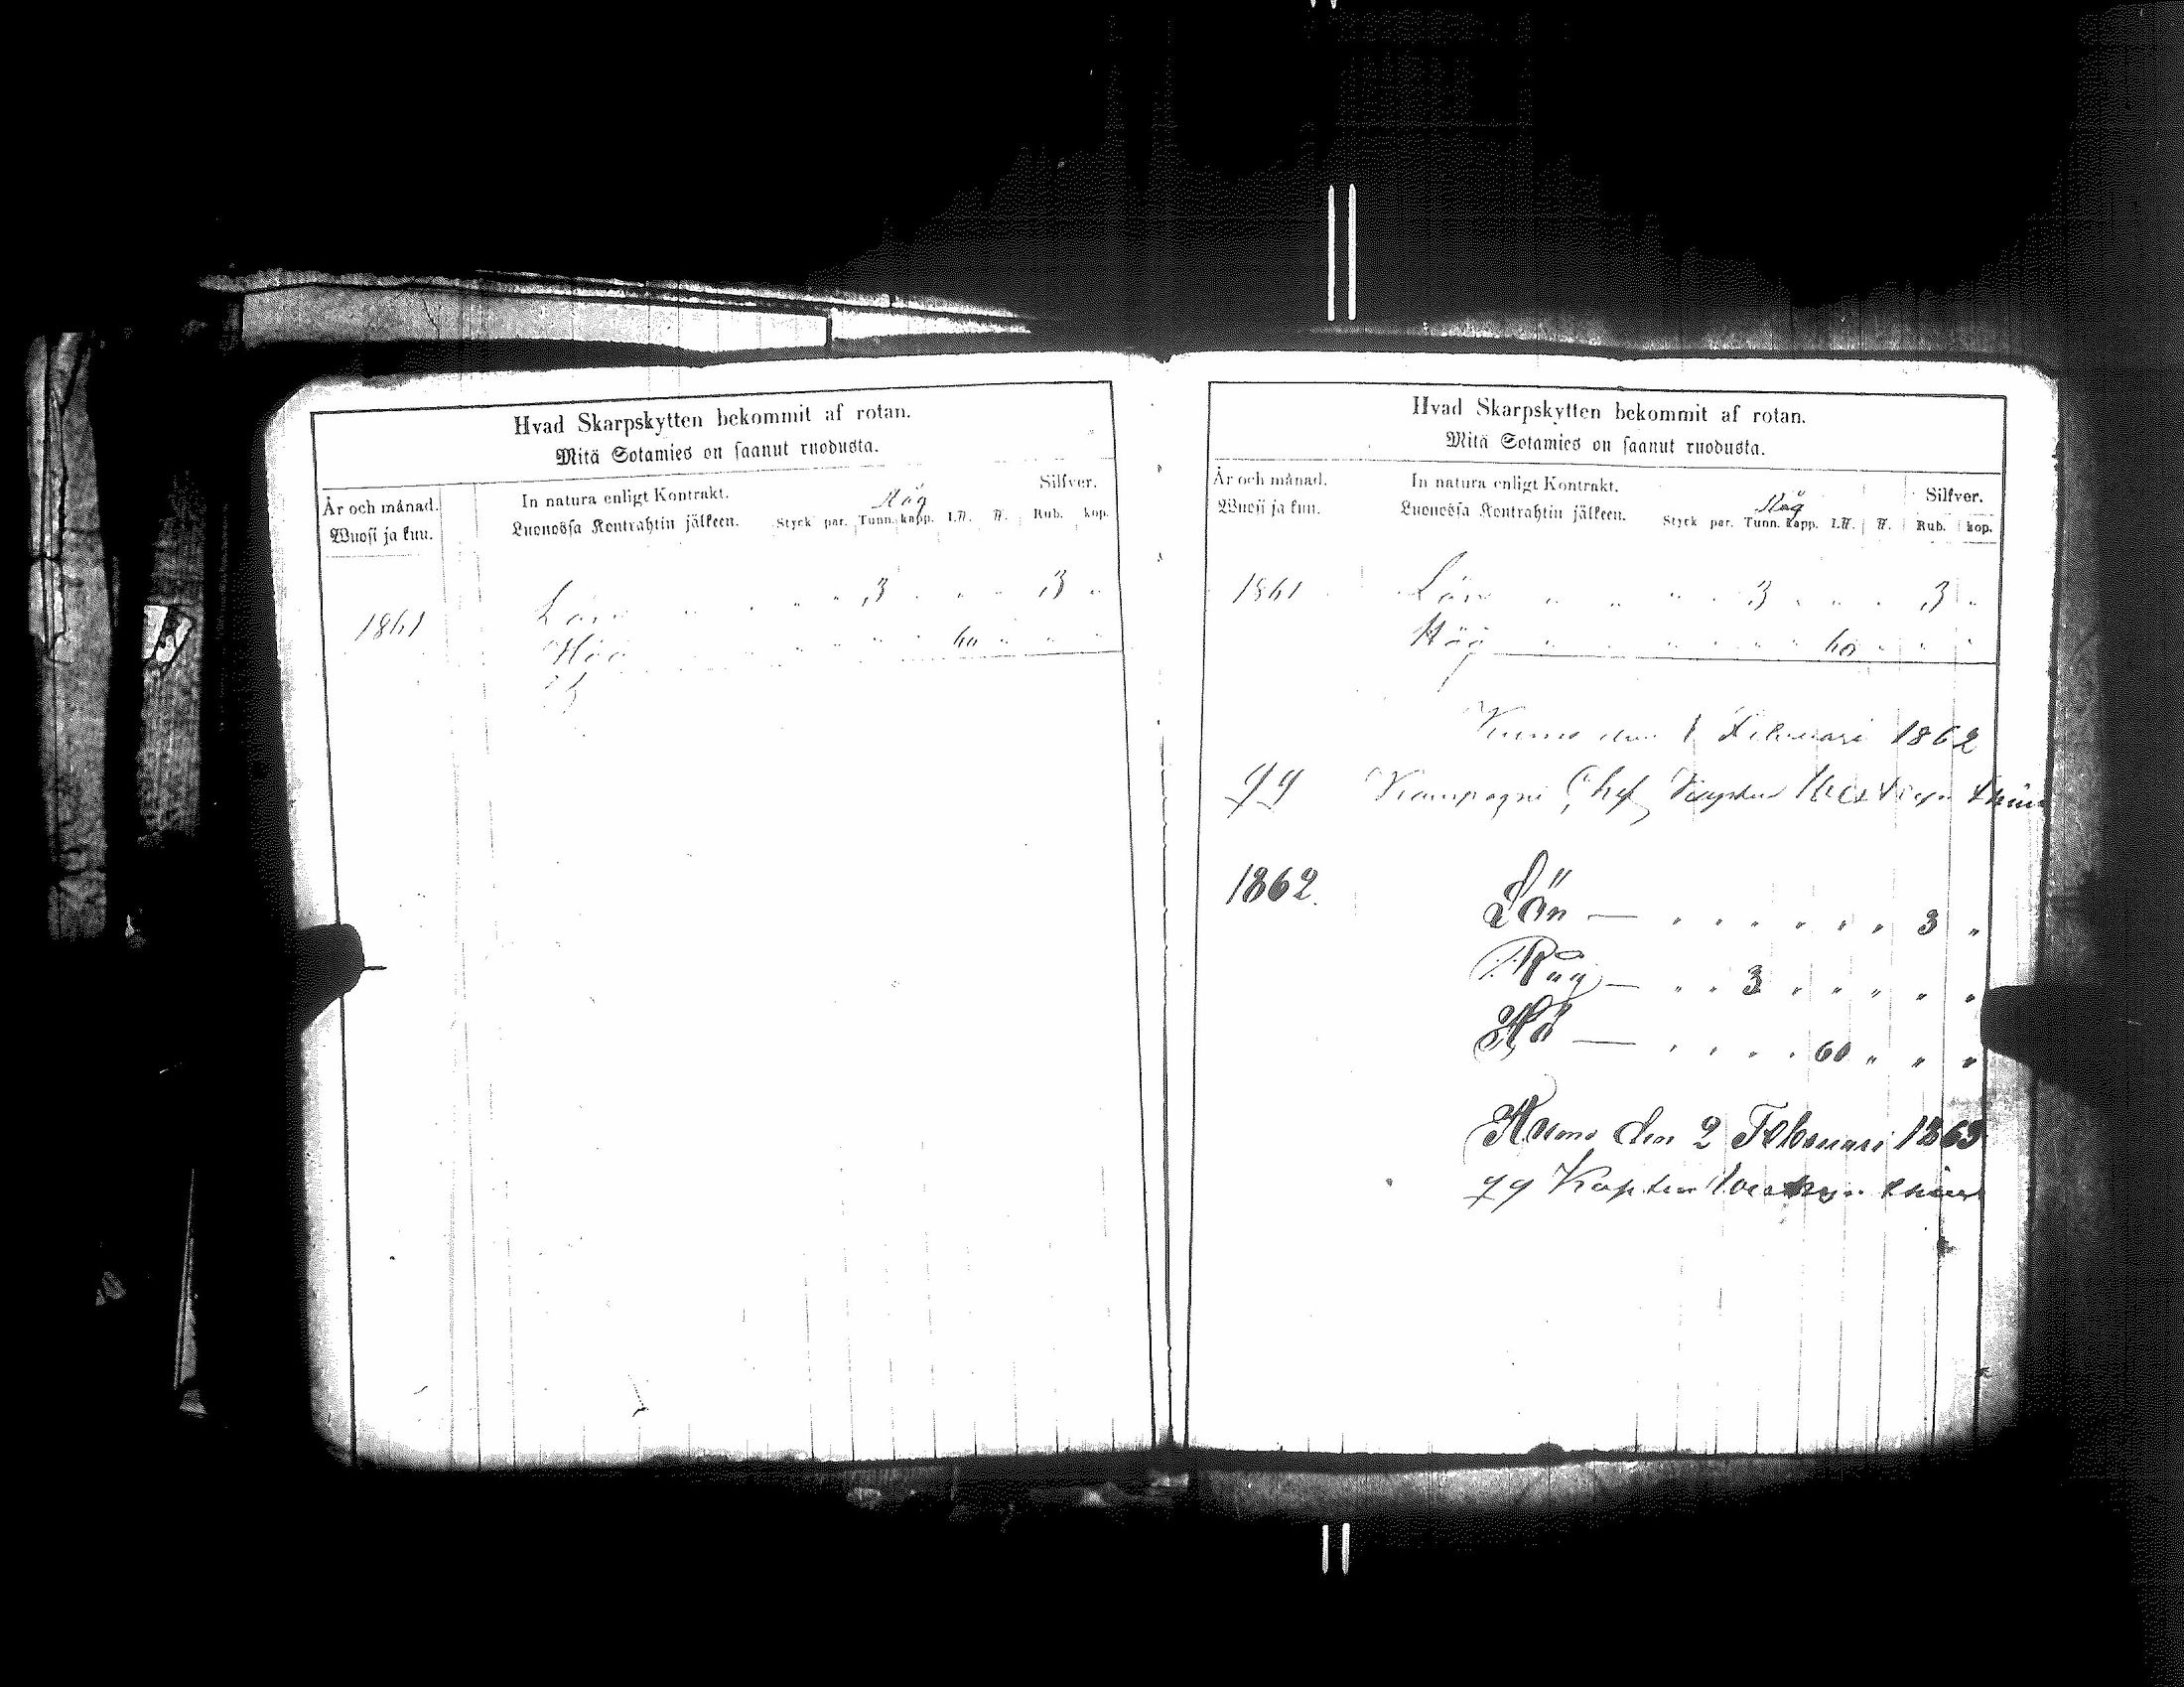 Hvad Skarpskytten bekommit af rotan.
Mitä Sotamies on saanut ruodusta.
År och månad.
Wuosi ja kuu.
In natura enligt Kontrakt.
Luonossa Kontrahtin jälkeen.
Råg
Styck par. Tunn. kapp. L℔. ℔.
Silfver.
Rub. kop.
1861 Lön " " " " 3 " " " 3 "
" " " " " " 60 " " "
Hvad Skarpskytten bekommit af rotan.
Mitä Sotamies on saanut ruodusta.
År och månad.
Wuosi ja kuu.
In natura enligt Kontrakt.
Luonossa Kontrahtin jälkeen.
Råg
Styck par. Tunn. kapp. L℔. ℔.
Silfver.
Rub. kop.
1861 Lön " " " " 3 " " " 3 "
" " " " " " 60 " " "
Kumo den 1 Februari 1862
Kompagni Chef Kapten
1862. Lön — " " " " " " 3 "
Råg — " " 3 " " " " "
Hö — " " " " 60 " " "
Kumo den 2 Februari 1863
Kapten